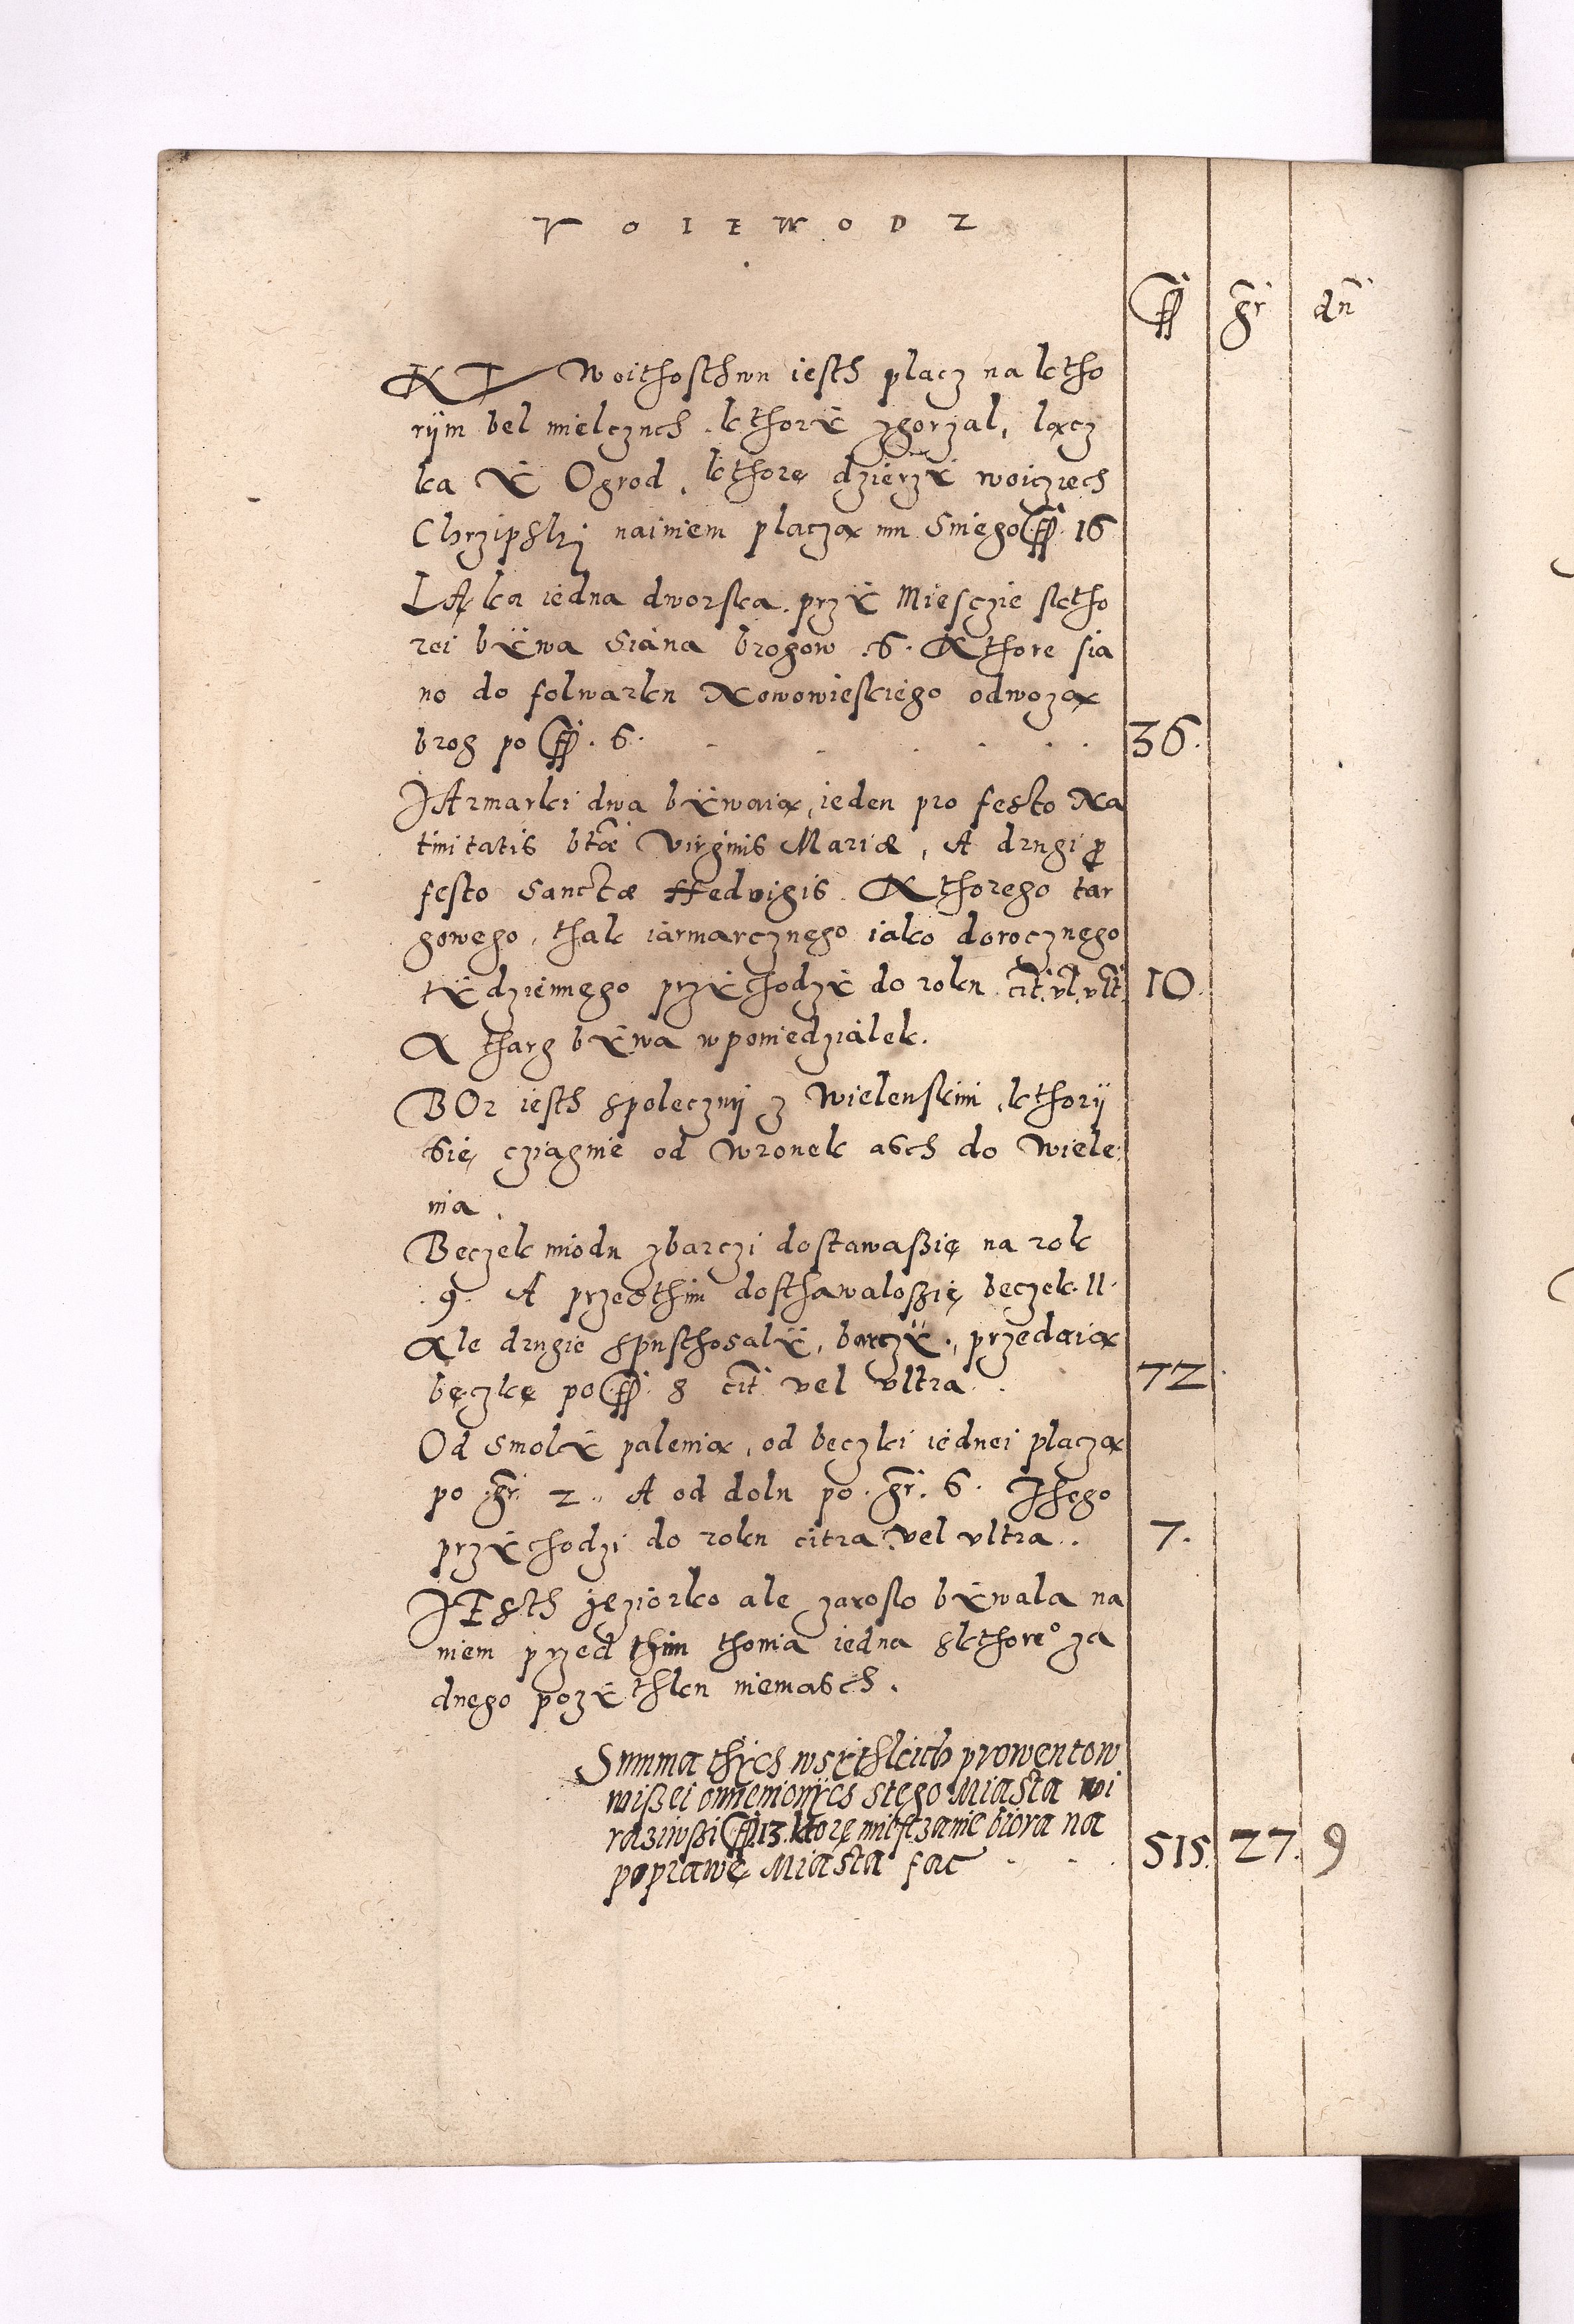 V O I E W O D Z
ff gr dn
KV Woithosthwu iesth plącz na ktho
rijm bel mielczuch, kthorÿ zgorzal, łącz
ka ÿ Ogrod, kthore dzierzÿ woiczech
Chrzipski naimem placzą mu Sniego ff 16
LĄka iedna dworska przÿ Miesczie sktho
rei bÿwa Siana brogow .6. Kthore sia
no do folwarku Nowowieskiego odwożą
brog po ff. 6. 36.
JArmarki dwa bÿwaią, ieden pro festo Na
tiuitatis btæ Virginis Mariæ, A drugi p
festo Sanctæ Hedvigis. Kthorego tar
gowego, thak iarmarcznego iako dorocznego
tÿdziennego przÿchodzÿ do roku cit. vl. vlt. 10.
A tharg bÿwa wponiedzialek.
BOr iesth spolecznij z Wielenskim, kthorij
Się cziagnie od Wronek asch do Wiele
nia.
Beczek miodu zbarczi dostawaßię na rok
.9. A przedthim dosthawaloßię beczek. 11.
Ale drugie spusthosalÿ, barczÿ., przedaią
bęczkę po ff. 8 cit. vel vltra. 72.
Od Smolÿ palenia, od beczki iednei placzą
po gr. 2. A od dolu po. gr. 6. Jthego
przÿchodzi do roku citra vel vltra.. 7.
JEsth jęziorko ale zaroslo bÿwala na
niem przed thim thonia iedna skthore° za
dnego pozÿthku niemasch.
Summa thÿch wsÿthkich prowentow
wißei omienionÿch stego Miasta wi
raziwßi ff. 13. ktore mießczanie biora na
poprawę Miasta fac 515. 27. 9